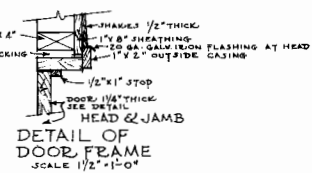 SHAKES 1/2" THICK
1" X 8" SHEATHING
20 GA. GALV. IRON FLASHING AT HEAD
1" X 2" OUTSIDE CASING
CKING
1/2" X 1" STOP
DOOR 1 1/4" THICK
SEE DETAIL
HEAD & JAMB
DETAIL OF
DOOR FRAME
SCALE 1 1/2" = 1'-0"